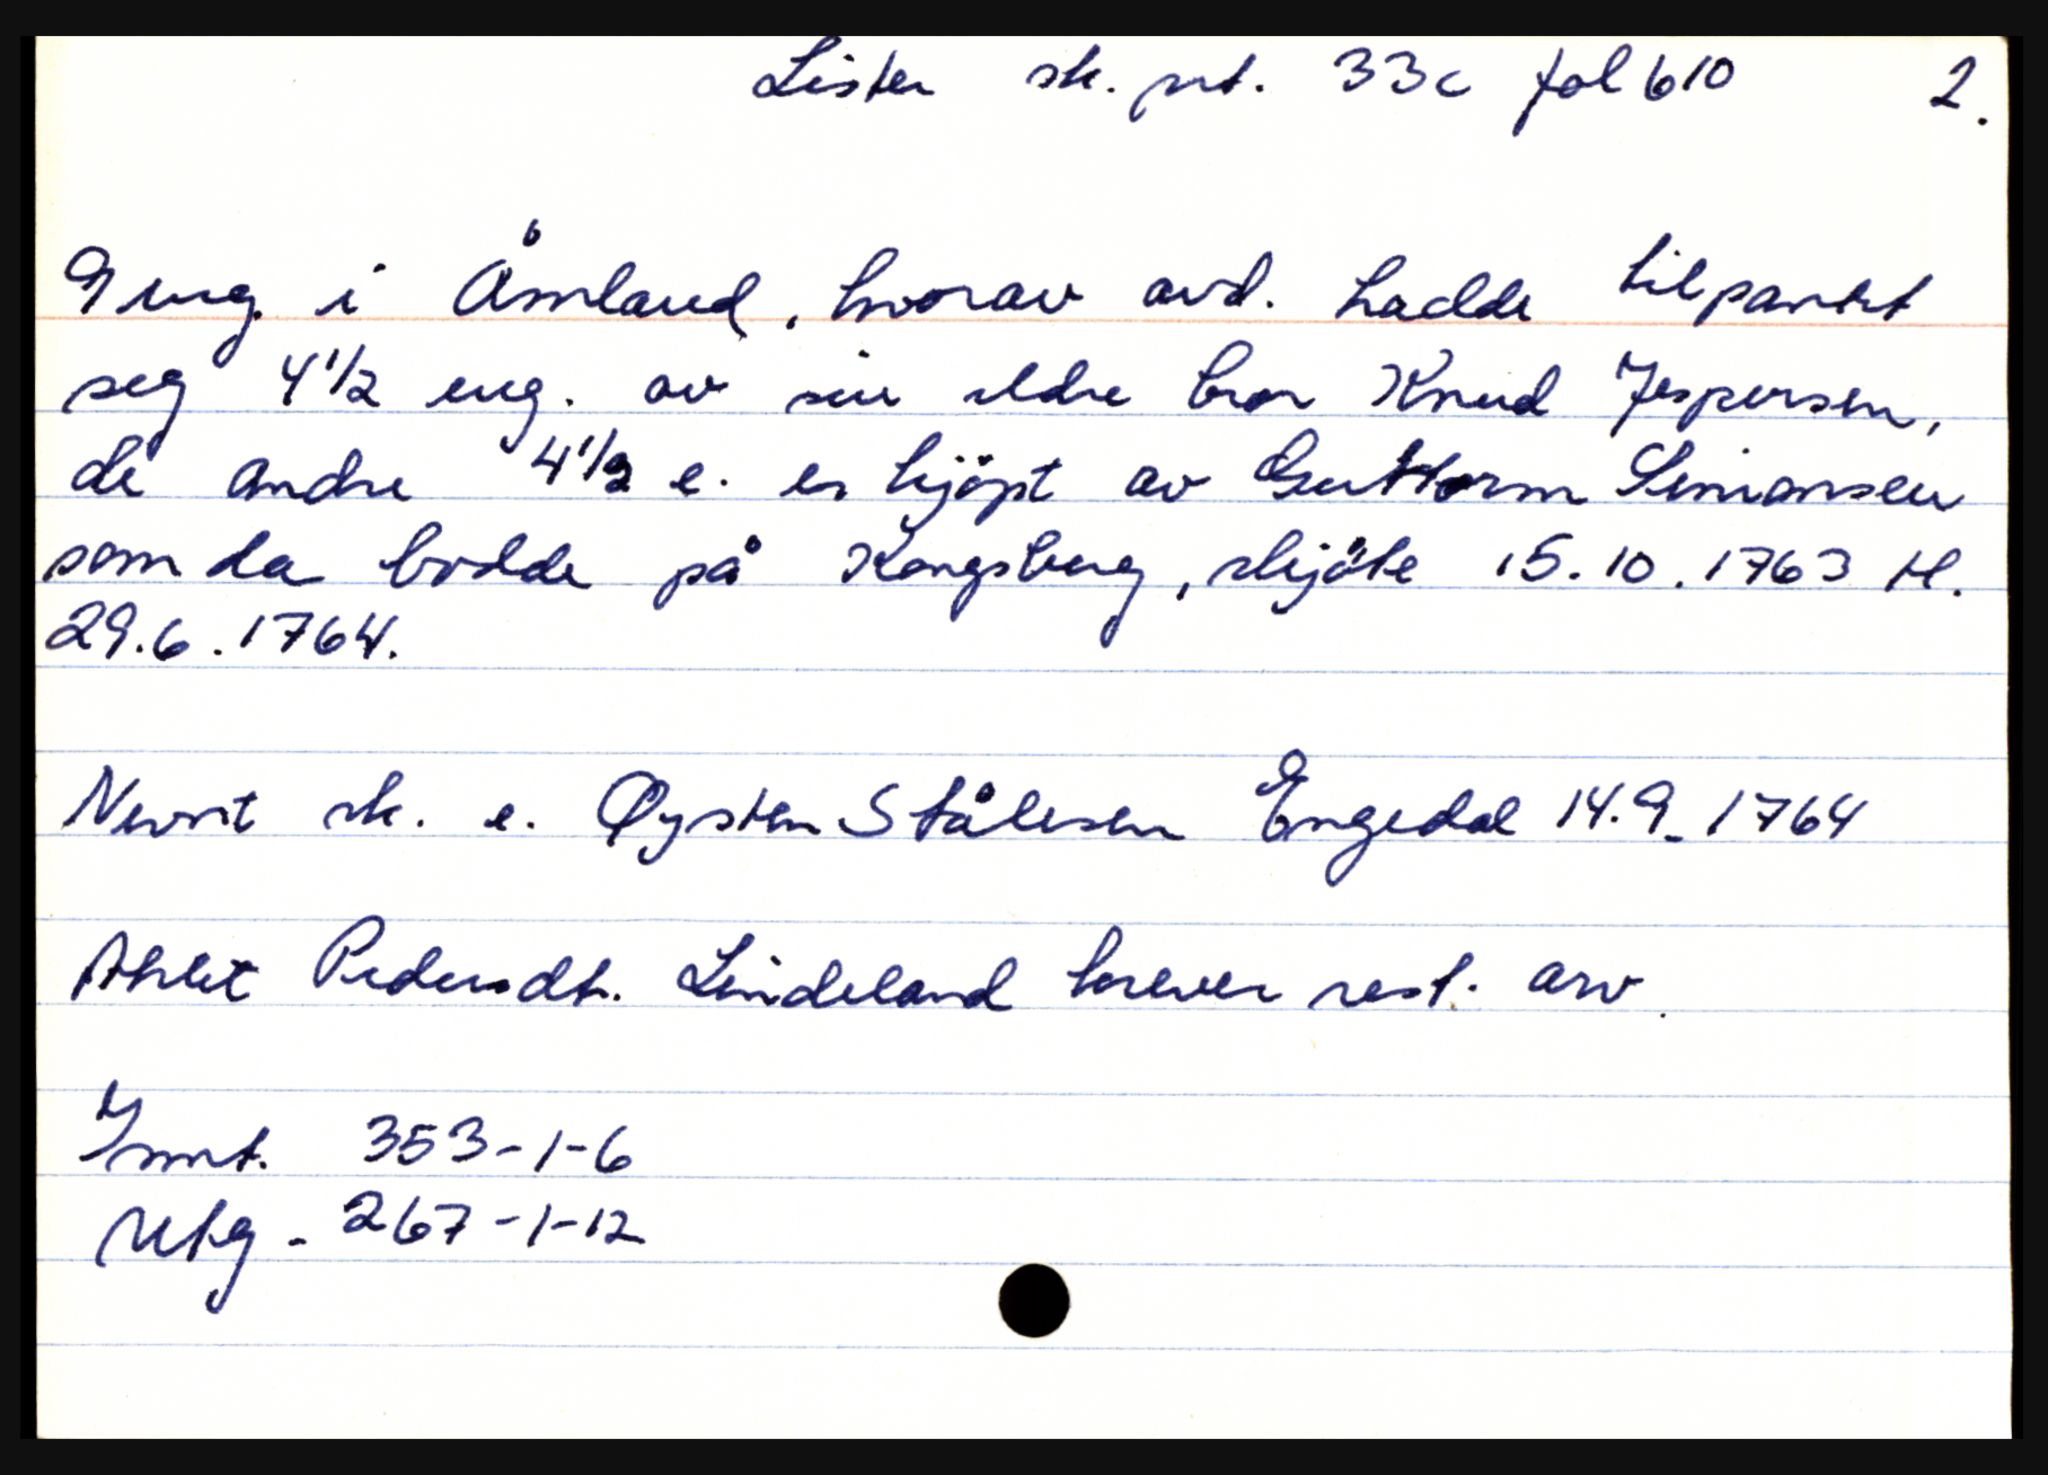 Lister sk. prt. 33c fol 610 2.
9 eng. i Åmland, hvorav avd. hadde tilpantet
seg 4 1/2 eng. av sin eldre bror Knud Jespersen,
de andre 4 1/2 e. er kjöpt av Guttorm Simonsen
som da bodde på Kongsberg, skjöte 15.10.1763 tl.
29.6.1764.
Nevnt sk. e. Øysten Stålesen Engedal 14.9.1764
Ahlet Pedersdt. Lindeland krever rest. arv.
Innt. 353-1-6
Utg. 267-1-12